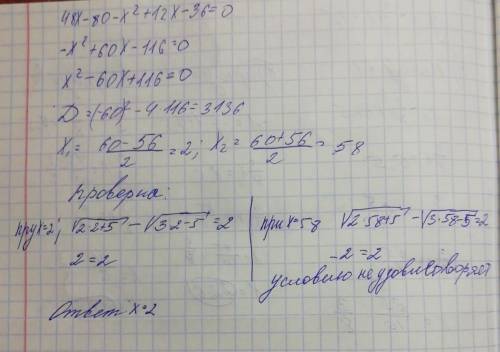 48x-80-x²+12x-36=0
-x²+60x-116=0
x²-60x+116=0
D=(-60)²-4·116=3136
x₁=(60-56)/2=2; x₂=(60+56)/2=58
Проверка:
при x=2; √(2·2+5)-√(3·2-5)=2
2=2
при x=58 √(2·58+5)-√(3·58-5)=2
-2=2
условию не удовлетворяет
Ответ x=2